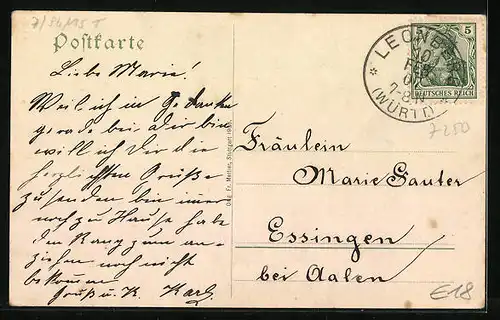 7/84115 T
Postkarte
Liebe Marie!
Weil ich in Gedanken
gerade bei dir bin
will ich Dir die
herzlichsten Grüße
zusenden bin immer
noch zu Hause habe
den Rang zum an-
ziehen noch nicht
bekommen
Gruß u. K. Karl
Fr. Stuttgart
LEONBERG
10
FEB
7-8 N
(WÜRTT)
5
DEUTSCHES REICH
7250
Fräulein
Marie Sauter
Essingen
bei Aalen
E18